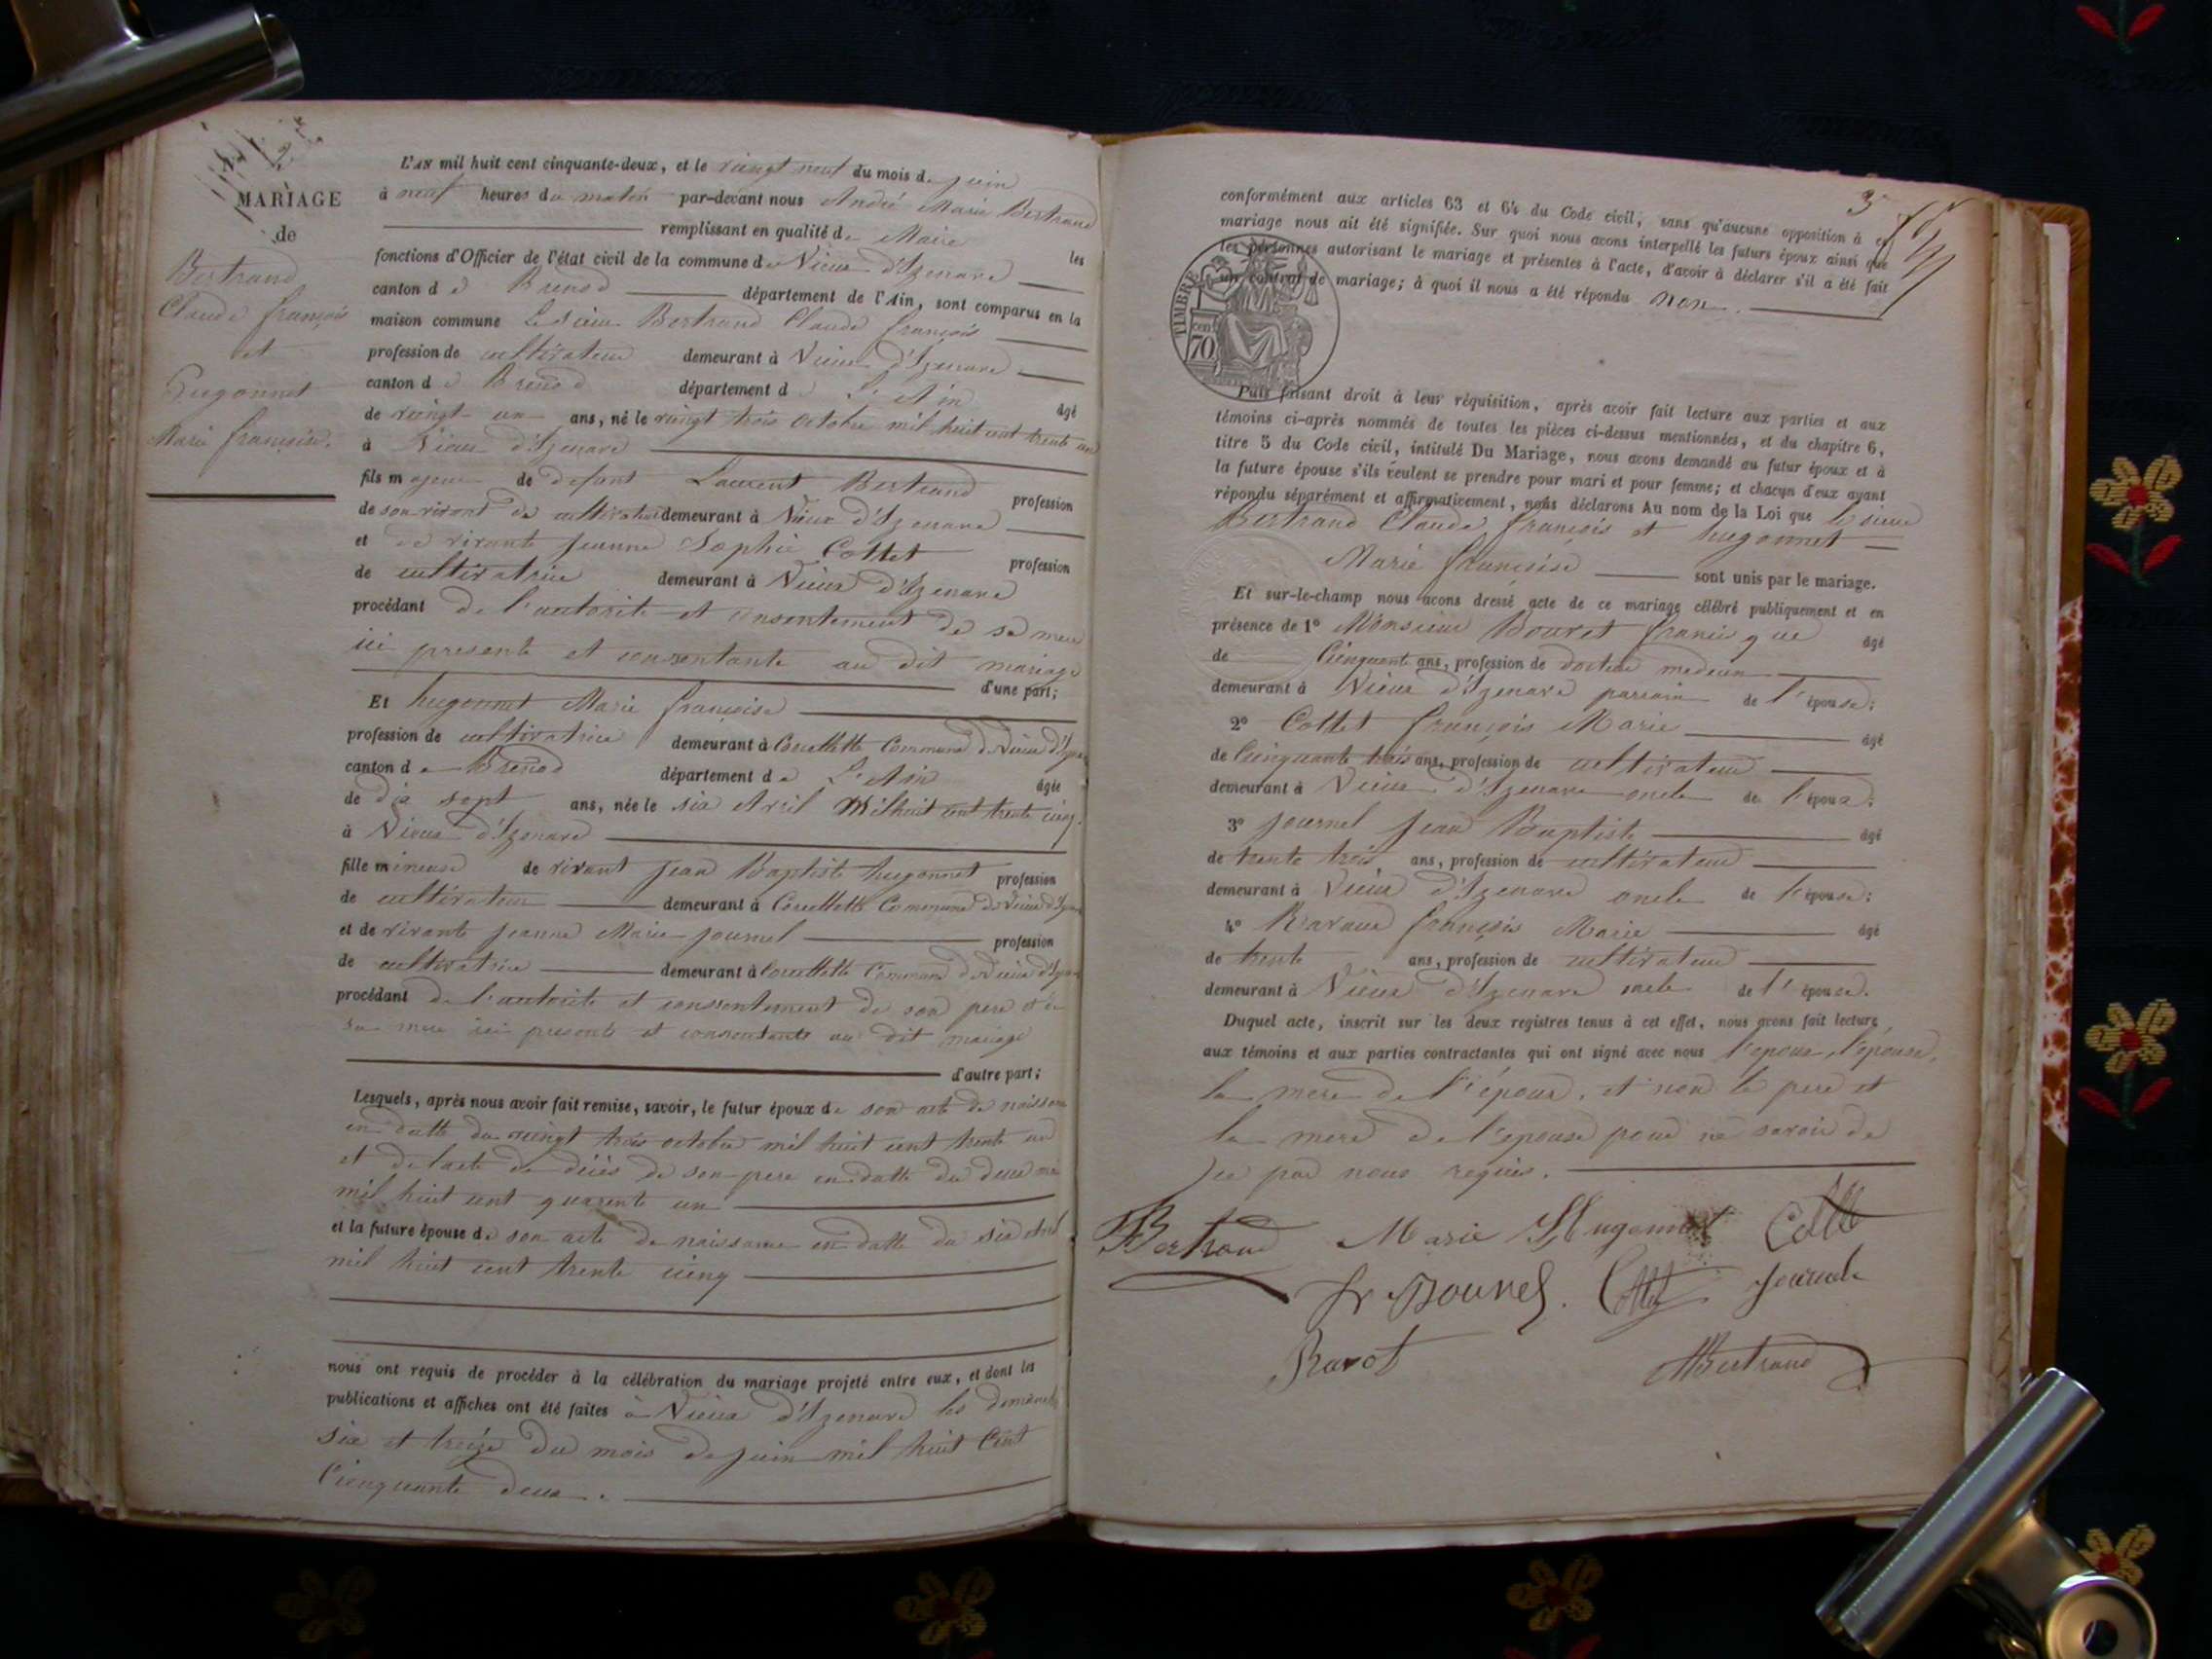 MARIAGE
de
Bertrand
Claude françois
et
hugonnet
Marie françoise.
L'AN mil huit cent cinquante-deux, et le vingt neuf du mois de juin
à neuf heures du matin par-devant nous André Marie Bertrand
remplissant en qualité de Maire les
fonctions d'Officier de l'état civil de la commune de Vieux d'Izenave
canton d e Brenod département de l'Ain, sont comparus en la
maison commune Le sieur Bertrand Claude françois
profession de cultivateur demeurant à Vieux d'Izenave
canton d e Brenod département d e L'Ain âgé
de vingt un ans, né le vingt trois octobre mil huit cent trente un
à Vieux d'Izenave
fils majeur de defunt Laurent Bertrand profession
de son vivant de cultivateur demeurant à Vieux d'Izenave
et de vivante jeanne Sophie Collet profession
de cultivatrice demeurant à Vieux d'Izenave
procédant de l'autorite et consentement de sa mere
ici presente et consentante au dit mariage
d'une part;
Et hugonnet Marie françoise
profession de cultivatrice demeurant à Commune de Vieux d'Izenave
canton d e Brenod département d e L'Ain âgée
de dix sept ans, née le six Avril Mil huit cent trente cinq.
à Vieux d'Izenave
fille mineure de vivant jean Baptiste hugonnet profession
de cultivateur demeurant à Commune de Vieux d'Izenave
et de vivante jeanne Marie journel profession
de cultivatrice demeurant à Commune de Vieux d'Izenave
procédant de l'autorite et consentement de son pere et de
sa mere ici presents et consentants au dit mariage
d'autre part;
Lesquels, après nous avoir fait remise, savoir, le futur époux de son acte de naissance
en datte du vingt trois octobre mil huit cent trente un
et de l'acte de décès de son pere en datte du deux
mil huit cent quarente un
et la future épouse de son acte de naissance en datte du six avril
mil huit cent trente cinq
nous ont requis de procéder à la célébration du mariage projeté entre eux, et dont les
publications et affiches ont été faites à Vieux d'Izenave les dimanches
six et treize du mois de juin mil huit cent
cinquante deux.
3
conformément aux articles 63 et 64 du Code civil, sans qu'aucune opposition à ce
mariage nous ait été signifiée. Sur quoi nous avons interpellé les futurs époux ainsi que
les personnes autorisant le mariage et présentes à l'acte, d'avoir à déclarer s'il a été fait
un contrat de mariage; à quoi il nous a été répondu non.
TIMBRE
cen
70
Puis faisant droit à leur réquisition, après avoir fait lecture aux parties et aux
témoins ci-après nommés de toutes les pièces ci-dessus mentionnées, et du chapitre 6,
titre 5 du Code civil, intitulé Du Mariage, nous avons demandé au futur époux et à
la future épouse s'ils veulent se prendre pour mari et pour femme; et chacun d'eux ayant
répondu séparément et affirmativement, nous déclarons Au nom de la Loi que le sieur
Bertrand Claude françois et hugonnet
Marie françoise sont unis par le mariage.
Et sur-le-champ nous avons dressé acte de ce mariage célébré publiquement et en
présence de 1° Monsieur Bouvet âgé
de Cinquante ans, profession de docteur medecin
demeurant à Vieux d'Izenave parrain de l'épouse;
2° Collet françois Marie âgé
de Cinquante trois ans, profession de cultivateur
demeurant à Vieux d'Izenave oncle de l'époux;
3° journel jean Baptiste âgé
de trente trois ans, profession de cultivateur
demeurant à Vieux d'Izenave oncle de l'épouse;
4° françois Marie âgé
de trente ans, profession de cultivateur
demeurant à Vieux d'Izenave oncle de l'épouse.
Duquel acte, inscrit sur les deux registres tenus à cet effet, nous avons fait lecture
aux témoins et aux parties contractantes qui ont signé avec nous l'epoux, l'epouse,
la mere de l'époux, et non le pere et
la mere de l'epouse pour ne savoir de
ce par nous requis.
Bertrand Marie Hugonnet Collet
Bouvet. Collet Journel
Ravot Bertrand